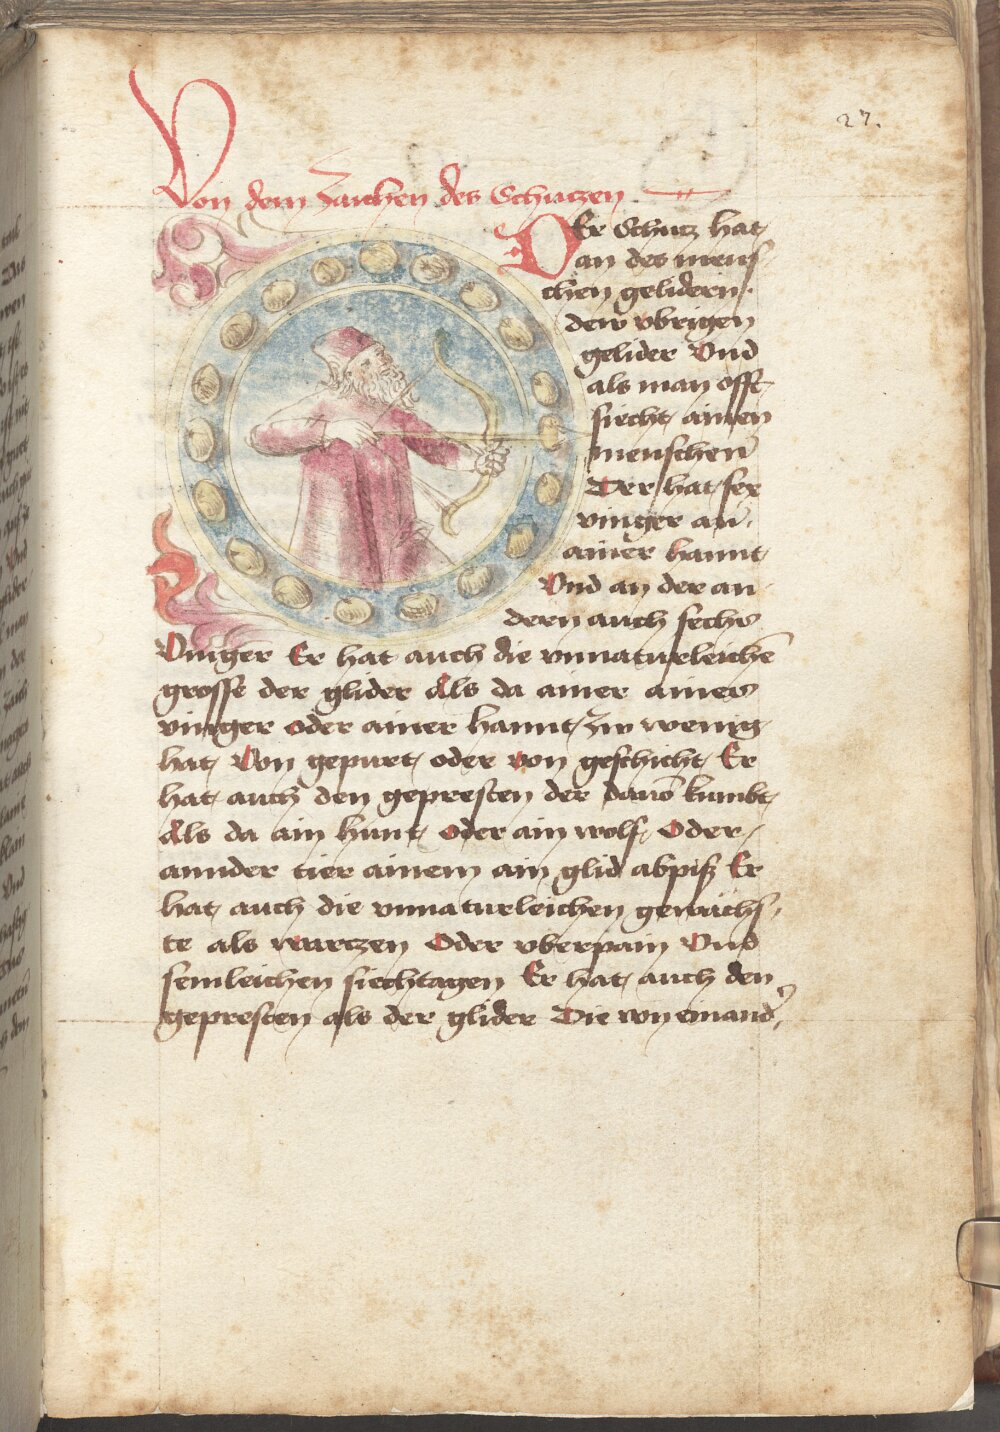 27.
Von dem Zaichen des Schuczen
DEr Schucz hat
an des mens
chen gelidern
dew vbrigen
gelider Vnd
als man offt
siecht ainen
menschen
Der hat sex
vinger an
ainer hannt
Vnd an der an
dern auch sechs
Vinger Er hat auch die vnnaturleichē
grosse der glider Als da ainer aines
vinger oder ainer hannt zw wenig
hat Von gepurt oder von geschicht Er
hat auch den gepresten der dauō kumbt
Als da ain hunt Oder ain wolf Oder
annder tier ainem ain glid abpiß Er
hat auch die vnnaturleichen gewächs
te als warczen Oder vberpain Vnd
semleichen siechtagen Er hat auch den
gepresten als der glider Die